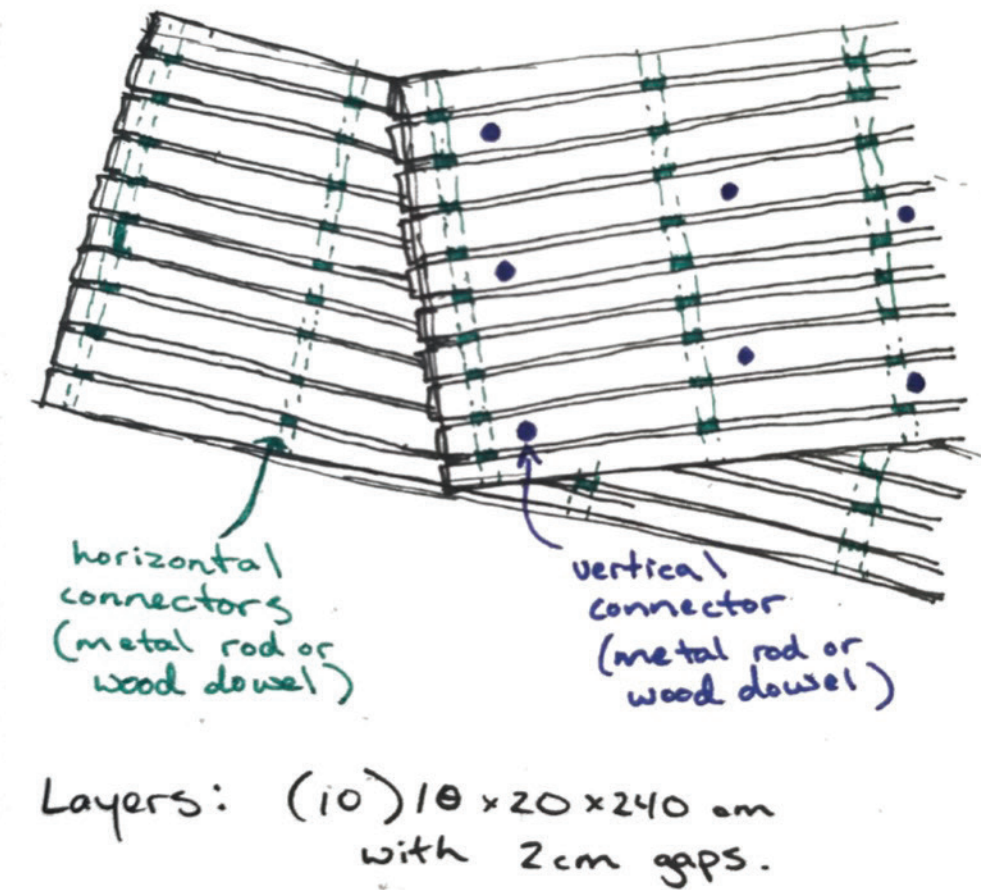 horizontal
connectors
(metal rod or
wood dowel)
vertical
connector
(metal rod or
wood dowel)
Layers: (10) 10 x 20 x 240 cm
with 2cm gaps.